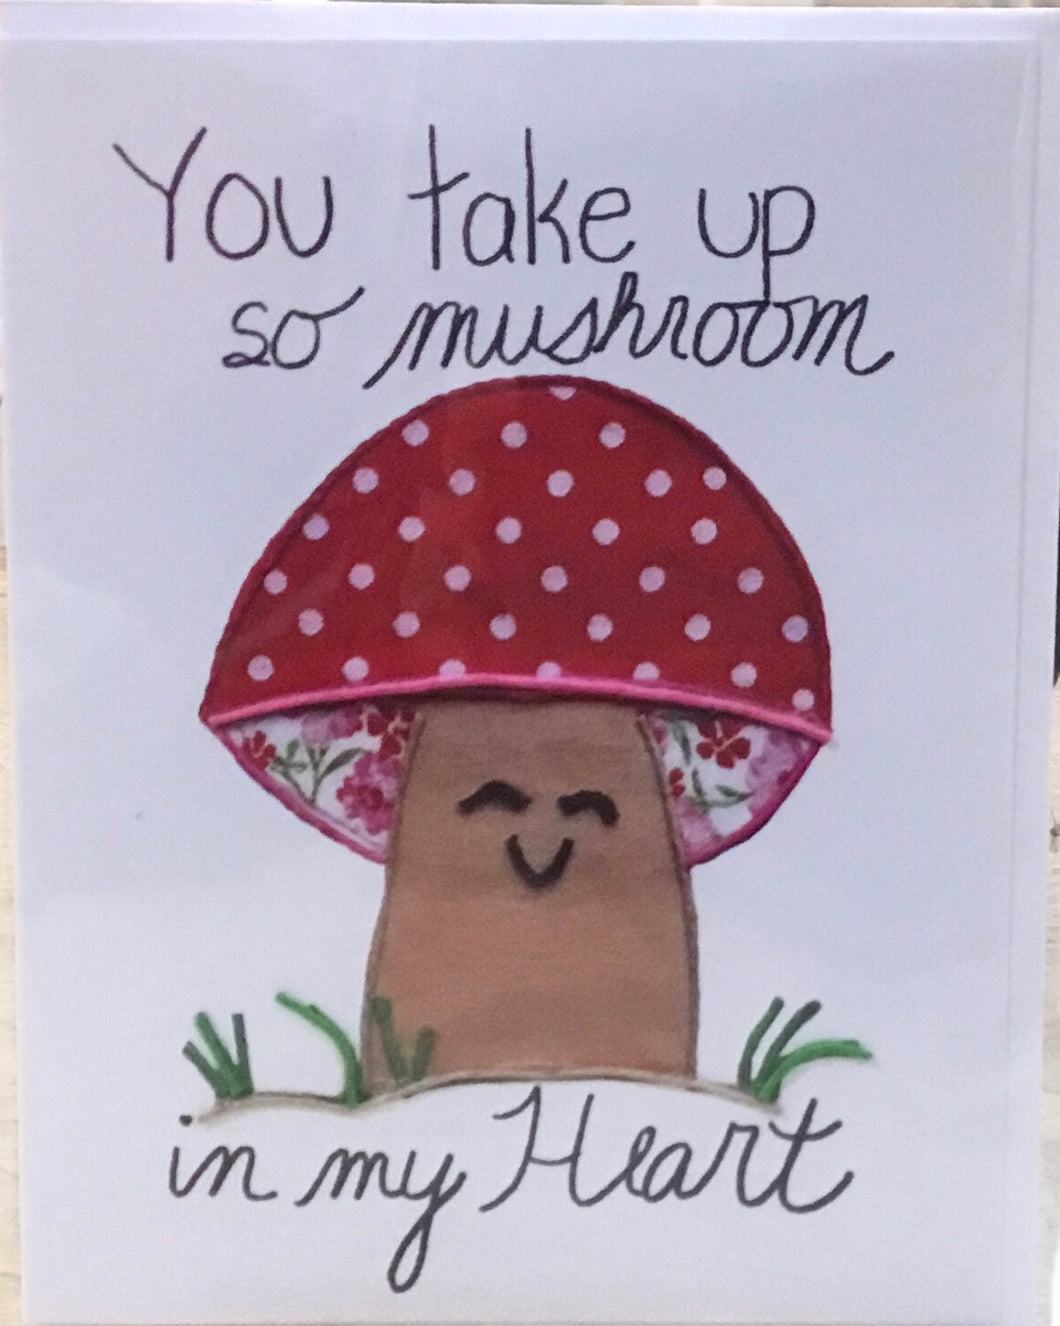 You take up
so mushroom
in my Heart